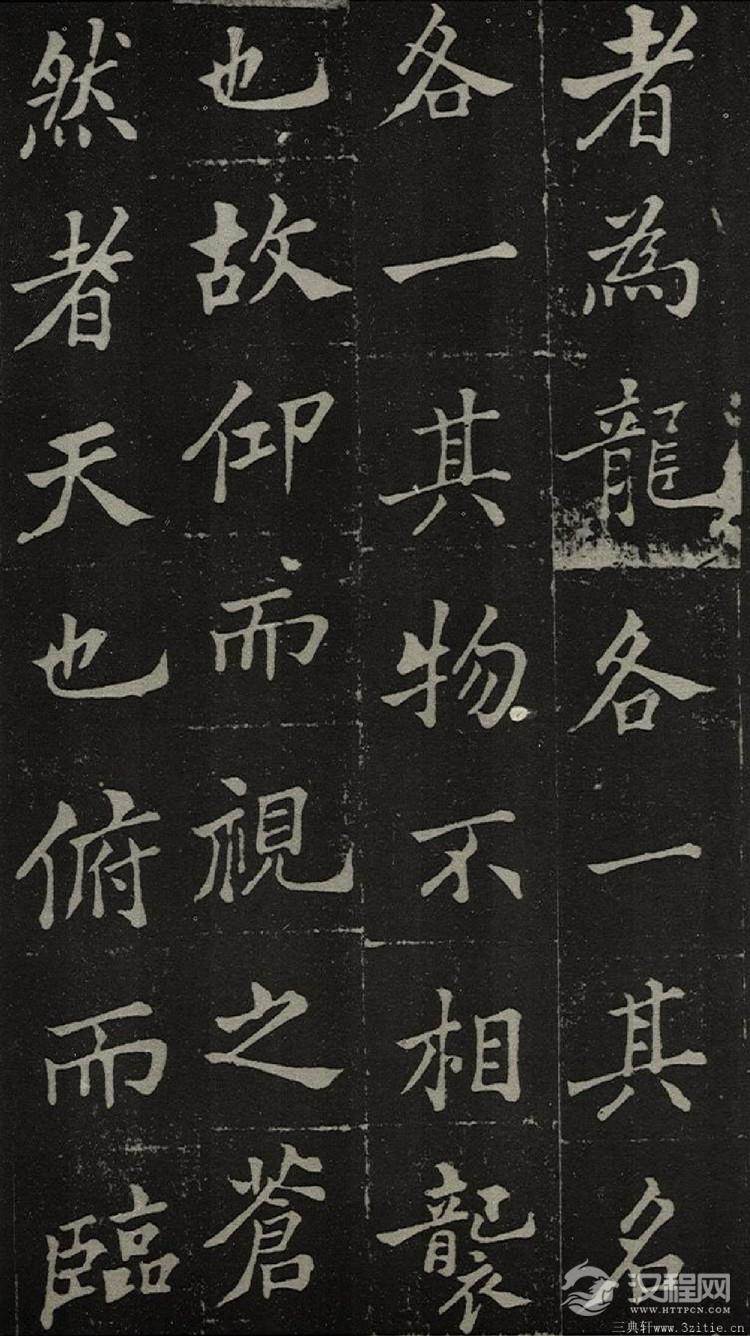 者為龍各一其名
各一其物不相襲
也故仰而視之蒼
然者天也俯而臨
汉程网
WWW.HTTPCN.COM
三典轩www.3zitie.cn